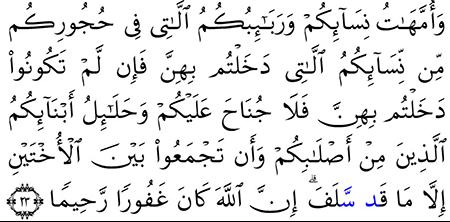 وَأُمَّهَـٰتُ نِسَآئِكُمْ وَرَبَـٰٓئِبُكُمُ ٱلَّـٰتِى فِى حُجُورِكُم
مِّن نِّسَآئِكُمُ ٱلَّـٰتِى دَخَلْتُم بِهِنَّ فَإِن لَّمْ تَكُونُوا۟
دَخَلْتُم بِهِنَّ فَلَا جُنَاحَ عَلَيْكُمْ وَحَلَـٰٓئِلُ أَبْنَآئِكُمُ
ٱلَّذِينَ مِنْ أَصْلَـٰبِكُمْ وَأَن تَجْمَعُوا۟ بَيْنَ ٱلْأُخْتَيْنِ
إِلَّا مَا قَد سَّلَفَ ۗ إِنَّ ٱللَّهَ كَانَ غَفُورًا رَّحِيمًا ٢٣